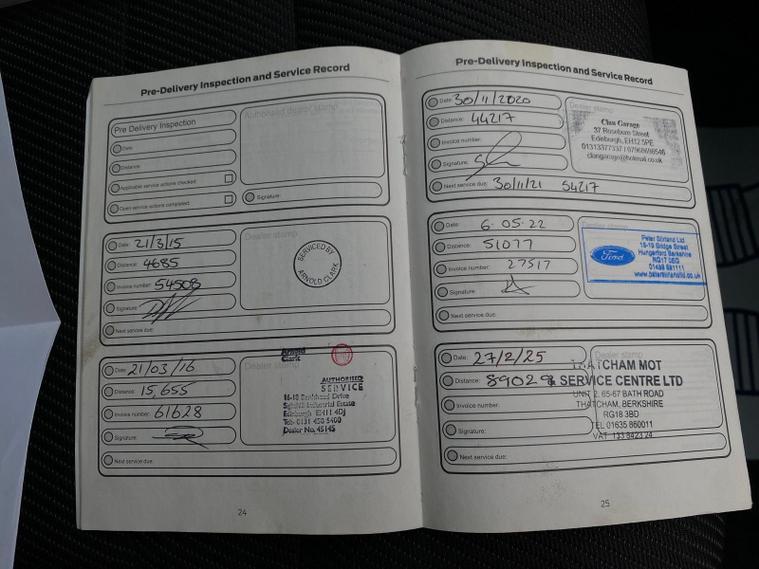 Pre-Delivery Inspection and Service Record
Pre Delivery Inspection
Date:
Distance:
Applicable service actions checked
Open service actions completed:
Authorised dealer stamp
Signature:
Date: 21/3/15
Distance: 4685
Invoice number: 54508
Signature:
Next service due:
Dealer stamp
SERVICED BY
ARNOLD CLARK
Date: 21/03/16
Distance: 15,655
Invoice number: 61628
Signature:
Next service due:
Dealer stamp
Arnold
Clark
AUTHORISED
SERVICE
Edinburgh EH11 4DJ
Tel: 0131 458 5400
Dealer No. 45145
24
Pre-Delivery Inspection and Service Record
Date: 30/11/2020
Distance: 44217
Invoice number:
Signature:
Next service due: 30/11/21 54217
Dealer stamp
Clan Garage
37 Roseburn Street
Edinburgh, EH12 5PE
01313377337 / 07968698546
clangarage@hotmail.co.uk
Date: 6.05.22
Distance: 51077
Invoice number: 27517
Signature:
Next service due:
Dealer stamp
Ford
Peter Stirland Ltd
16-19 Bridge Street
Hungerford Berkshire
RG17 0EG
Date: 27/2/25
Distance: 89029
Invoice number:
Signature:
Next service due:
Dealer stamp
THATCHAM MOT
& SERVICE CENTRE LTD
UNIT 2, 65-67 BATH ROAD
THATCHAM, BERKSHIRE
RG18 3BD
TEL 01635 860011
VAT 133 8423 24
25